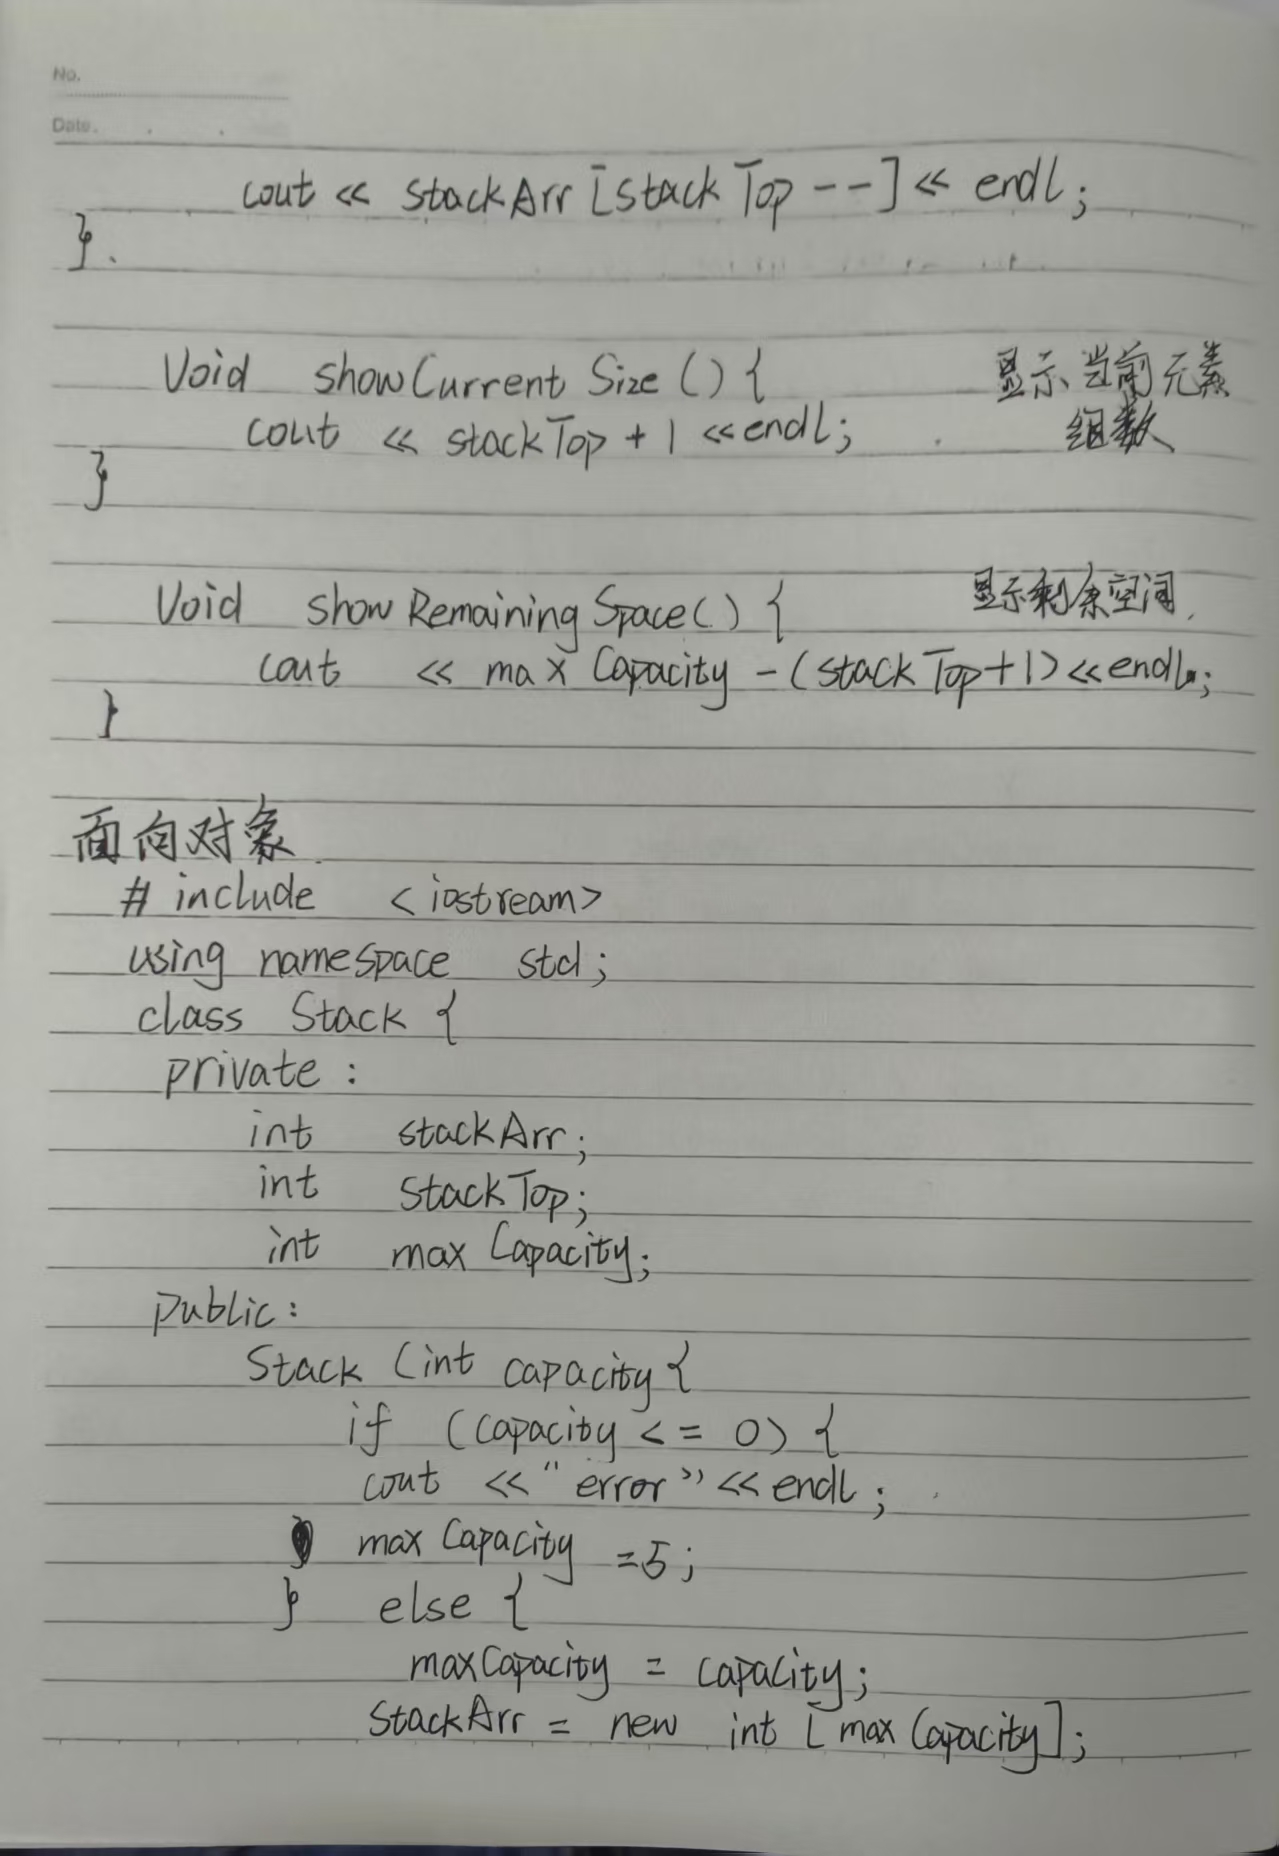 No.
Date.
cout << stackArr [stackTop --] << endl;
}.
Void showCurrentSize () { 显示当前元素
cout << stackTop + 1 << endl; 组数
}
Void showRemainingSpace() { 显示剩余空间.
cout << maxCapacity - (stackTop+1) << endl;
}
面向对象
# include <iostream>
using namespace std;
class Stack {
private :
int stackArr;
int stackTop;
int maxCapacity;
public :
Stack (int capacity {
if (capacity <= 0) {
cout << "error" << endl ;
maxCapacity = 5 ;
} else {
maxCapacity = capacity;
StackArr = new int [maxCapacity];